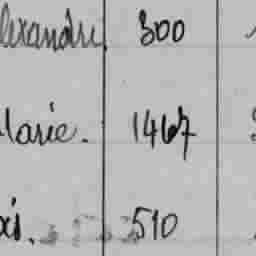 lexandri 300
Marie. 1467
xi. 510